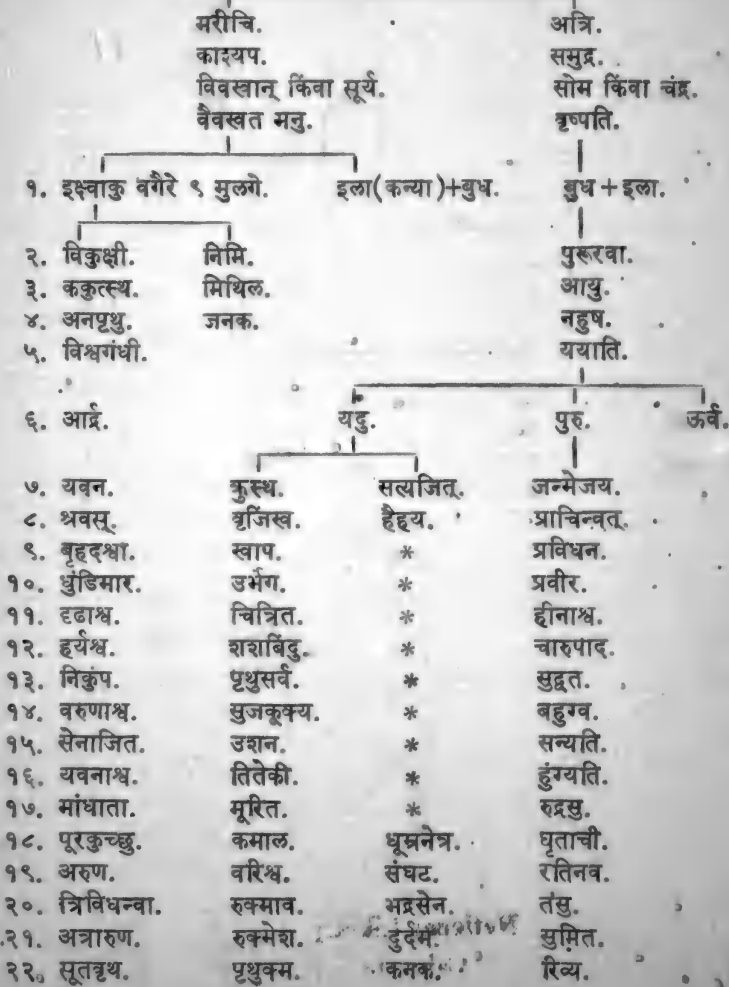 मरीचि. अत्रि.
काश्यप. समुद्र.
विवस्वान् किंवा सूर्य. सोम किंवा चंद्र.
वैवस्वत मनु. बृष्पति.
१. इक्ष्वाकु वगैरे ९ मुलगे. इला(कन्या)+बुध. बुध + इला.
२. विकुक्षी. निमि. पुरूरवा.
३. ककुत्स्थ. मिथिल. आयु.
४. अनपृथु. जनक. नहुष.
५. विश्वगंधी. ययाति.
६. आर्द्र. यदु. पुरु. ऊर्व.
७. यवन. क्रुस्थ. सत्यजित्. जन्मेजय.
८. श्रवस्. वृजिस्व. हैहय. प्राचिन्वत्.
९. बृहदश्वा. स्वाप. * प्रविधन.
१०. धुंडिमार. उर्भेग. * प्रवीर.
११. दृढाश्व. चित्रित. * हीनाश्व.
१२. हर्यश्व. शशबिंदु. * चारुपाद.
१३. निकुंप. पृथुसर्व. * सुद्वत.
१४. वरुणाश्व. सुजकूक्य. * बहुग्व.
१५. सेनाजित. उशन. * सन्यति.
१६. यवनाश्व. तितेकी. * हुंग्यति.
१७. मांधाता. मूरित. * रुद्रसु.
१८. पूरकुच्छु. कमाल. धूम्रनेत्र. घृताची.
१९. अरुण. वरिश्व. संघट. रतिनव.
२०. त्रिविधन्वा. रुक्माव. भद्रसेन. तंसु.
२१. अत्रारुण. रुक्मेश. दुर्दम. सुमित.
२२. सूतवृथ. पृथुक्म. कनक. रिव्य.